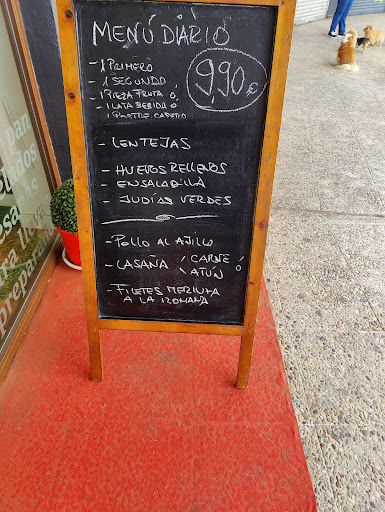 MENÚ DIARIO
- 1 PRIMERO
- 1 SEGUNDO
- 1 PIEZA FRUTA Ó
- 1 LATA BEBIDA Ó
1 POSTRE CASERO
9,90 €
- LENTEJAS
- HUEVOS RELLENOS
- ENSALADILLA
- JUDÍAS VERDES
- POLLO AL AJILLO
- LASAÑA (CARNE Ó
ATÚN
- FILETES MERLUZA
A LA ROMANA
pan